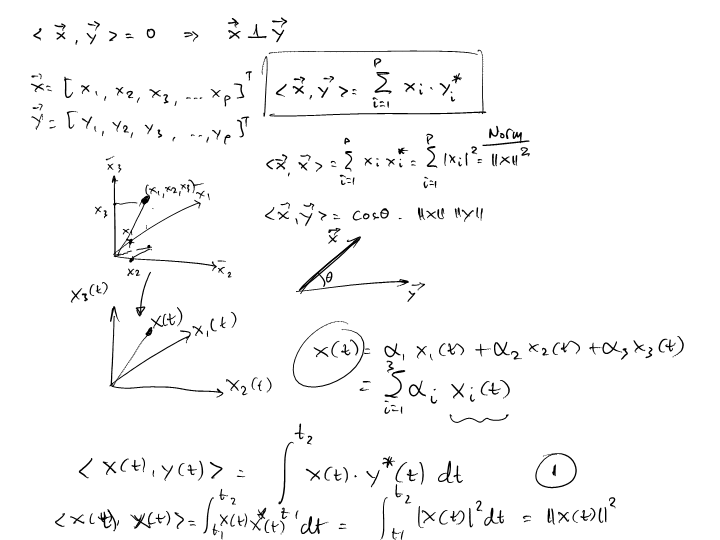 < x⃗ , y⃗ > = 0 ⇒ x⃗ ⊥ y⃗
x⃗ = [ x₁, x₂, x₃, ... xₚ ]ᵀ
y⃗ = [ y₁, y₂, y₃, ..., yₚ ]ᵀ
< x⃗ , y⃗ > = ∑_{i=1}^{p} xᵢ · yᵢ*
Norm
< x⃗ , x⃗ > = ∑_{i=1}^{p} xᵢ xᵢ* = ∑_{i=1}^{p} |xᵢ|² = ||x||²
< x⃗ , y⃗ > = cosθ . ||x|| ||y||
x̄₃
(x₁, x₂, x₃)
x̄₁
x₃
x₁
x₂
x̄₂
x⃗
θ
y⃗
x₃(t)
x(t)
x₁(t)
x₂(t)
x(t) = α₁ x₁(t) + α₂ x₂(t) + α₃ x₃(t)
= ∑_{i=1}^{3} αᵢ xᵢ(t)
< x(t), y(t) > = ∫_{t₁}^{t₂} x(t) · y*(t) dt ①
< x(t), x(t) > = ∫_{t₁}^{t₂} x(t) x*(t) dt = ∫_{t₁}^{t₂} |x(t)|² dt = ||x(t)||²